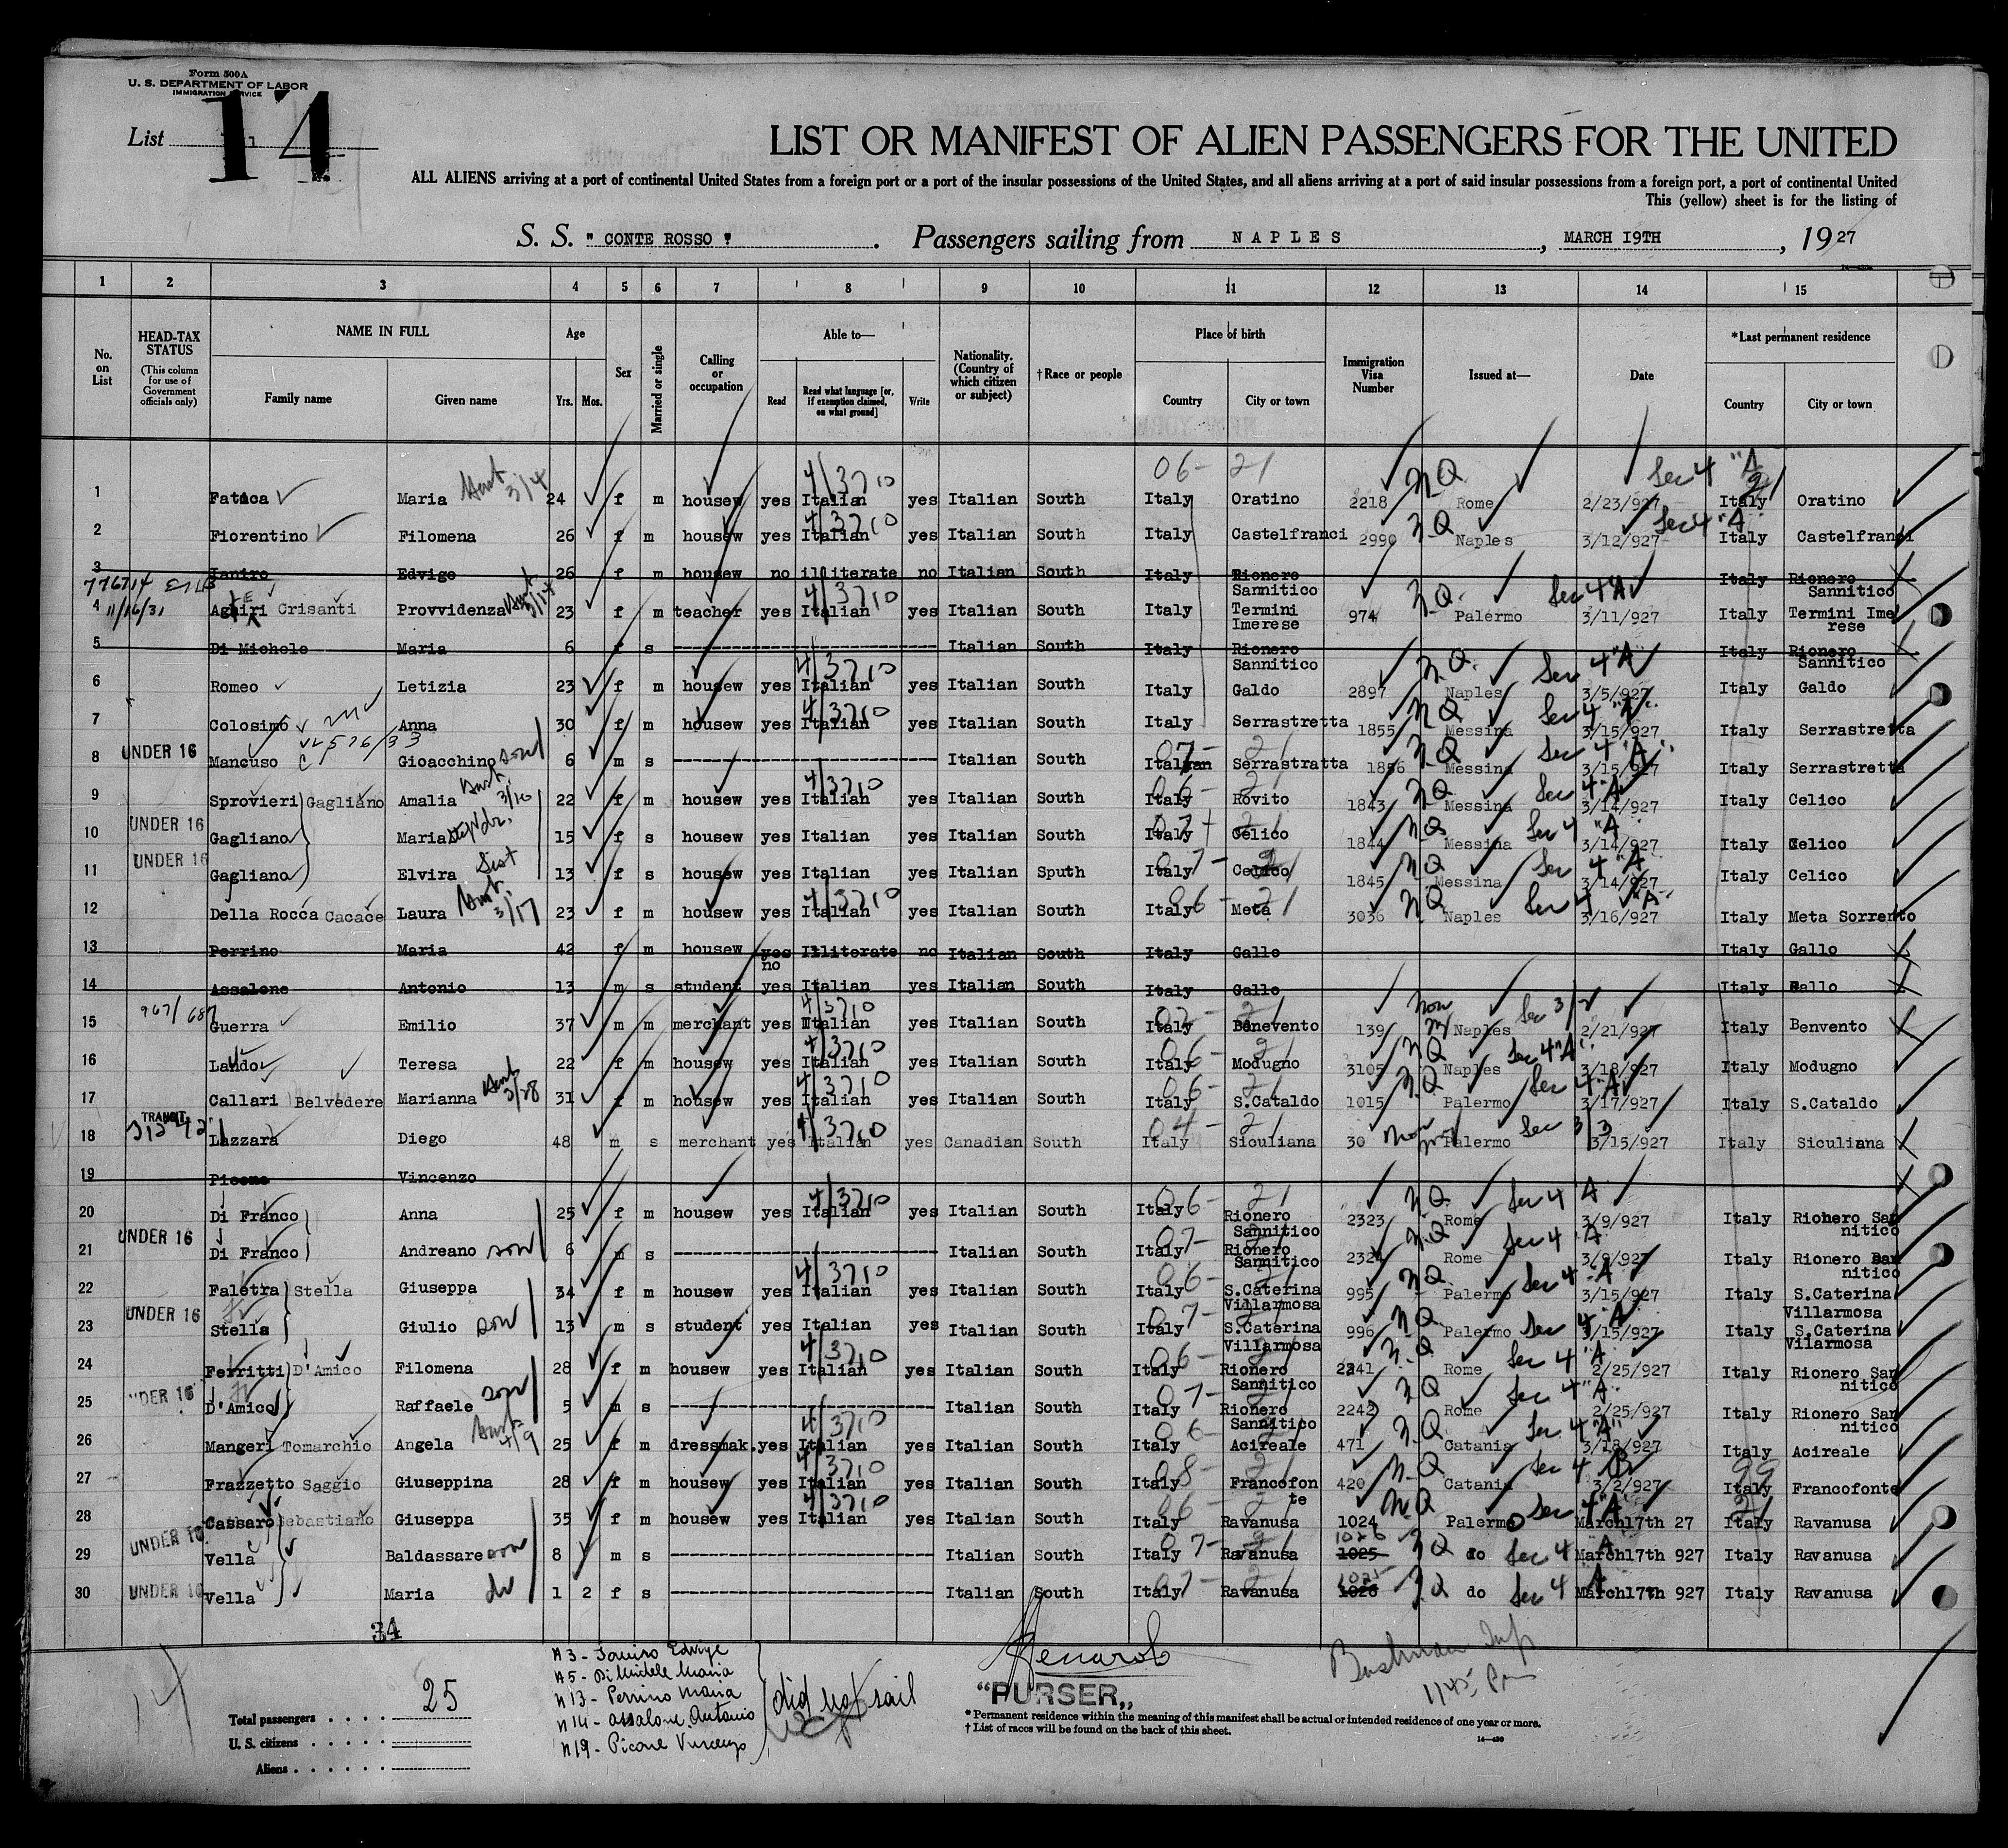 Form 500A
U. S. DEPARTMENT OF LABOR
IMMIGRATION SERVICE
List 14
LIST OR MANIFEST OF ALIEN PASSENGERS FOR THE UNITED
ALL ALIENS arriving at a port of continental United States from a foreign port or a port of the insular possessions of the United States, and all aliens arriving at a port of said insular possessions from a foreign port, a port of continental United
This (yellow) sheet is for the listing of
S. S. "CONTE ROSSO". Passengers sailing from NAPLES, MARCH 19TH, 1927
1 2 3 4 5 6 7 8 9 10 11 12 13 14 15
No. on List
HEAD-TAX STATUS (This column for use of Government officials only)
NAME IN FULL Family name Given name
Age Yrs. Mos.
Sex
Married or single
Calling or occupation
Able to— Read Read what language [or, if exemption claimed, on what ground] Write
Nationality. (Country of which citizen or subject)
†Race or people
Place of birth Country City or town
Immigration Visa Number
Issued at—
Date
*Last permanent residence Country City or town
1 Fatica Maria 3/4 24 f m housew yes Italian 4/3710 yes Italian South Italy 06- 21 Oratino 2218 N.Q. Rome 2/23/927 Sec 4 "A" Italy 21 Oratino
2 Fiorentino Filomena 26 f m housew yes Italian 4/3710 yes Italian South Italy Castelfranci 2990 N.Q. Naples 3/12/927 Sec 4 "A" Italy Castelfranci
3 Ianiro Edvige 26 f m housew no illiterate no Italian South Italy Rionero Sannitico Italy Rionero Sannitico
11/16/31
4 Aghiri Crisanti Provvidenza 23 f m teacher yes Italian 4/3710 yes Italian South Italy Termini Imerese 974 N.Q. Palermo 3/11/927 Sec 4 A Italy Termini Imerese
5 Di Michele Maria 6 f s Italian South Italy Rionero Sannitico Italy Rionero Sannitico
6 Romeo Letizia 23 f m housew yes Italian 4/3710 yes Italian South Italy Galdo 2897 N.Q. Naples 3/5/927 Sec 4 "A" Italy Galdo
7 Colosimo Anna 30 f m housew yes Italian 4/3710 yes Italian South Italy Serrastretta 1855 N.Q. Messina 3/15/927 Sec 4 "A" Italy Serrastretta
8 UNDER 16 Mancuso Gioacchino son 6 m s Italian South Italian 07- 21 Serrastratta 1856 N.Q. Messina 3/15/927 Sec 4 "A" Italy Serrastretta
9 Sprovieri Gagliano Amalia 3/10 22 f m housew yes Italian 4/3710 yes Italian South Italy 06- 21 Rovito 1843 N.Q. Messina 3/14/927 Sec 4 "A" Italy Celico
10 UNDER 16 Gagliano Maria 15 f s housew yes Italian yes Italian South Italy 07- 21 Celico 1844 N.Q. Messina 3/14/927 Sec 4 "A" Italy Celico
11 UNDER 16 Gagliano Elvira 13 f s housew yes Italian yes Italian Sputh Italy 07- 21 Celico 1845 N.Q. Messina 3/14/927 Sec 4 "A" Italy Celico
12 Della Rocca Cacace Laura 3/17 23 f m housew yes Italian 4/3710 yes Italian South Italy 06- 21 Meta 3036 N.Q. Naples 3/16/927 Sec 4 "A" Italy Meta Sorrento
13 Perrino Maria 42 f m housew yes no Illiterate no Italian South Italy Gallo Italy Gallo
14 Assalone Antonio 13 m s student yes Italian yes Italian South Italy Gallo Italy Gallo
15 Guerra Emilio 37 m m merchant yes Italian 4/3710 yes Italian South Italy Benevento 139 Naples 2/21/927 Sec 3/2 Italy Benvento
16 Lando Teresa 22 f m housew yes Italian 4/3710 yes Italian South Italy 06- 21 Modugno 3105 N.Q. Naples 3/18/927 Sec 4 "A" Italy Modugno
17 Callari Belvedere Marianna 3/28 31 f m housew yes Italian 4/3710 yes Italian South Italy 06- 21 S.Cataldo 1015 N.Q. Palermo 3/17/927 Sec 4 "A" Italy S.Cataldo
18 TRANSIT Lazzara Diego 48 m s merchant yes Italian 4/3710 yes Canadian South Italy 04- 21 Siculiana 30 Palermo 3/15/927 Sec 3/3 Italy Siculiana
19 Picone Vincenzo
20 Di Franco Anna 25 f m housew yes Italian 4/3710 yes Italian South Italy 06- 21 Rionero Sannitico 2323 N.Q. Rome 3/9/927 Sec 4 "A" Italy Rionero Sannitico
21 UNDER 16 Di Franco Andreano son 6 m s Italian South Italy 07- Rionero Sannitico 2324 N.Q. Rome 3/9/927 Sec 4 "A" Italy Rionero Sannitico
22 Faletra Stella Giuseppa 34 f m housew yes Italian 4/3710 yes Italian South Italy 06- 21 S.Caterina Villarmosa 995 N.Q. Palermo 3/15/927 Sec 4 "A" Italy S.Caterina Villarmosa
23 UNDER 16 Stella Giulio son 13 m s student yes Italian yes Italian South Italy 07- 21 S.Caterina Villarmosa 996 N.Q. Palermo 3/15/927 Sec 4 "A" Italy S.Caterina Vilarmosa
24 Ferritti D'Amico Filomena 28 f m housew yes Italian 4/3710 yes Italian South Italy 06- 21 Rionero Sannitico 2241 N.Q. Rome 2/25/927 Sec 4 "A" Italy Rionero Sannitico
25 UNDER 16 D'Amico Raffaele son 5 m s Italian South Italy 07- 21 Rionero Sannitico 2242 N.Q. Rome 2/25/927 Sec 4 "A" Italy Rionero Sannitico
26 Mangeri Tomarchio Angela 4/9 25 f m dressmak. yes Italian 4/3710 yes Italian South Italy 06- 21 Acireale 471 N.Q. Catania 3/18/927 Sec 4 "A" Italy Acireale
27 Frazzetto Saggio Giuseppina 28 f m housew yes Italian 4/3710 yes Italian South Italy 08- 21 Francofonte 420 N.Q. Catania 3/2/927 Sec 4 B Italy 99 Francofonte
28 Cassaro Sebastiano Giuseppa 35 f m housew yes Italian 4/3710 yes Italian South Italy 06- 21 Ravanusa 1024 N.Q. Palermo March17th 27 Sec 4 "A" Italy 21 Ravanusa
29 UNDER 16 Vella Baldassare son 8 m s Italian South Italy 07- 21 Ravanusa 1025 1026 N.Q. do Sec 4 A March17th 927 Italy Ravanusa
30 UNDER 16 Vella Maria 1 2 f s Italian South Italy 07- 21 Ravanusa 1026 1025 N.Q. do Sec 4 A March17th 927 Italy Ravanusa
34
N 3 - Ianiro Edvige
N 5 - Di Michele Maria
N 13 - Perrino Maria
N 14 - Assalone Antonio
N 19 - Picone Vincenzo
did not sail
"PURSER"
14
Total passengers 25
U. S. citizens
Aliens
* Permanent residence within the meaning of this manifest shall be actual or intended residence of one year or more.
† List of races will be found on the back of this sheet.